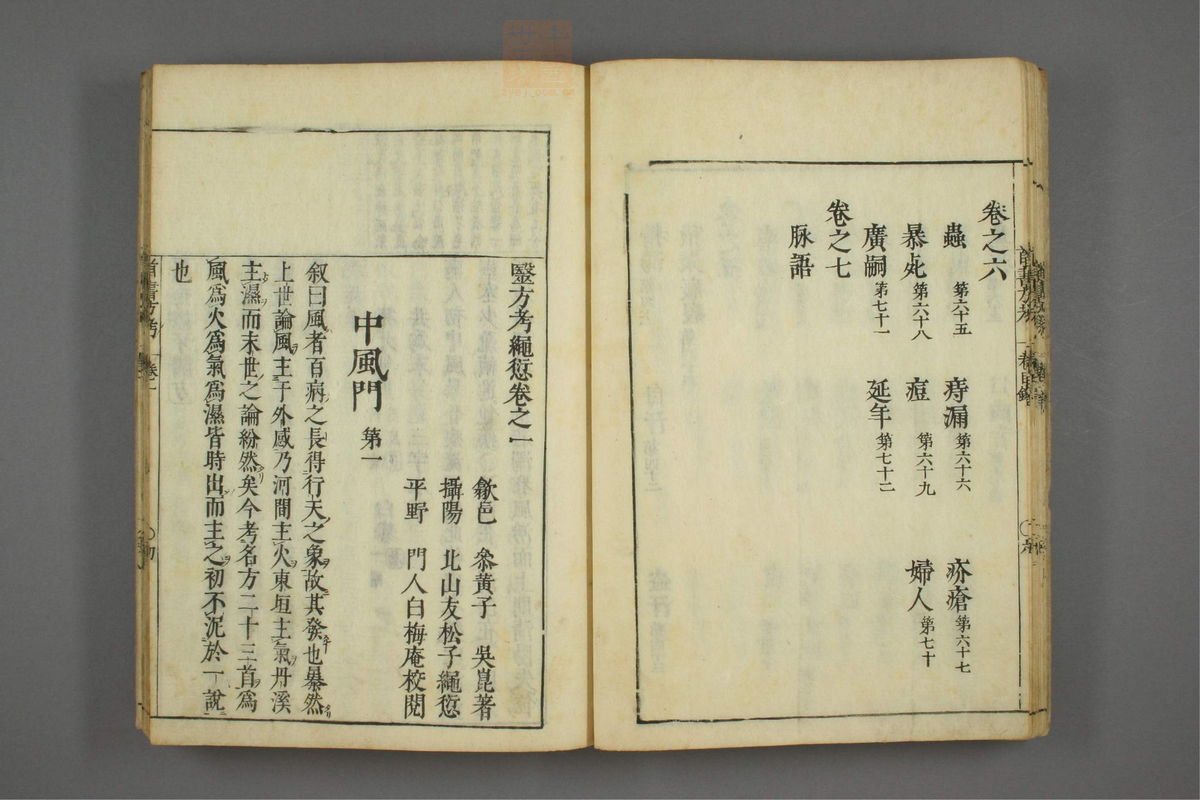 卷之六
蟲第六十五 痔漏第六十六 疥瘡第六十七
暴死第六十八 痘第六十九 婦人第七十
廣嗣第七十一 延年第七十二
卷之七
脉語
醫方考繩愆卷之一
歙邑 叅黃子 吳崑著
攝陽 北山友松子繩愆
平野 門人白梅庵校閱
中風門 第一
叙曰風者百病之長得行天之象故其發也暴然
上世論風主于外感乃河間主火東垣主氣丹溪
主濕而末世之論紛然矣今考名方二十三首爲
風爲火爲氣爲濕皆時出而主之初不泥於一說
也